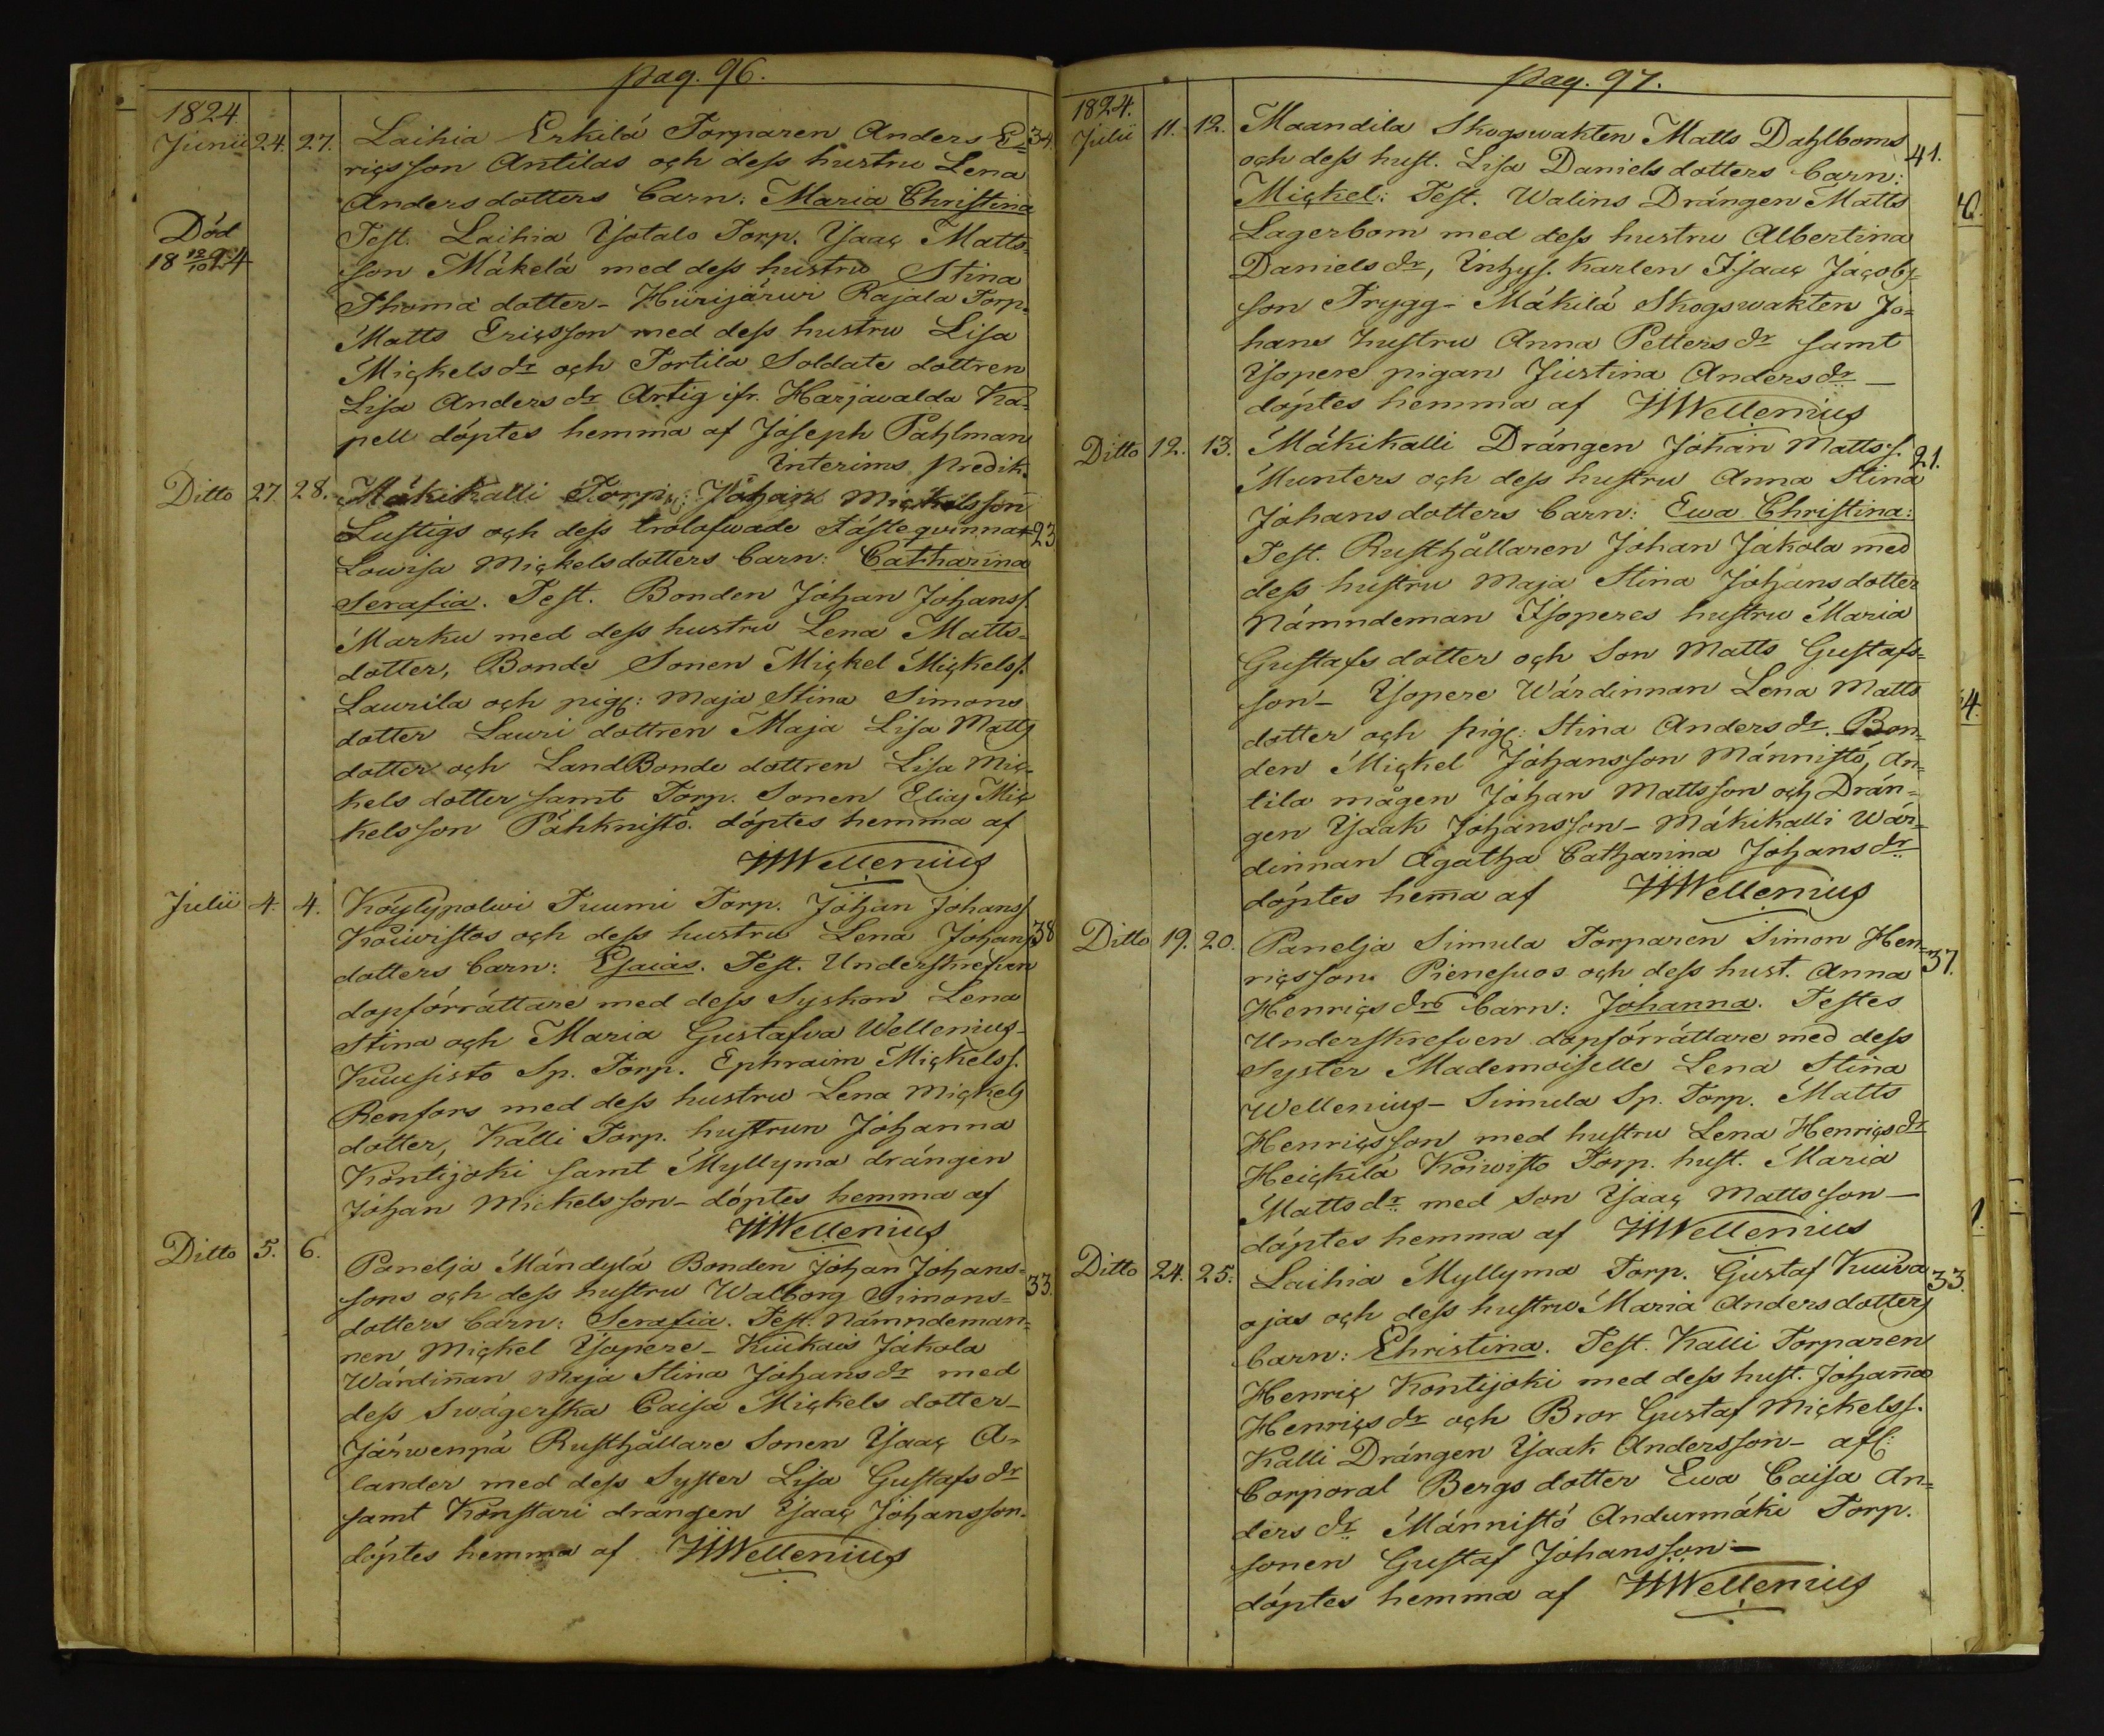 pag. 96.
1824.
Junii 24. 27. Laihia Erkilä Torparen Anders E= 34.
ricsson Antilas och dess hustru Lena
Anders dotters barn: Maria Christina
Död Test. Laihia Ysotalo Torp. Ysaac Matts=
18 12/10 24 son Mäkelä med dess hustru Stina
Thoma dotter - Hiirijärwi Rajala Torp.
Matts Ericsson med dess hustru Lisa
Mickels dr och Tortila Soldate dottren
Lisa Anders dr Artig ifr. Harjawalda Ka=
pell döptes hemma af Joseph Pahlman
Interims Predik.
Ditto 27. 28. Mäkikalli Torp: Johan Mickelsson
Lustigs och dess trolofwade Fästeqvinna 23
Lowisa Mickelsdotters barn: Catharina
Serafia. Test. Bonden Johan Johanss.
Marku med dess hustru Lena Matts=
dotter, Bonde Sonen Mickel Mickelss.
Laurila och pig: Maja Stina Simons
dotter Lauri dottren Maja Lisa Matts
dotter och LandBonde dottren Lisa Mic=
kels dotter samt Torp. Sonen Elias Mic
kelsson Pähknistö. döptes hemma af
Wellenius
Julii 4. 4. Köylypolwi Tuumi Torp. Johan Johans
Koiwistos och dess hustru Lena Johans 38
dotters barn: Esaias. Test. Underskrefven
dopförrättare med dess Syskon Lena
Stina och Maria Gustafva Wellenius -
Kuusisto Sp. Torp. Ephraim Mickelss.
Renfors med dess hustru Lena Mickels
dotter, Kalli Torp. hustrun Johanna
Kontijoki samt Myllyma drängen
Johan Mickelsson - döptes hemma af
Wellenius
Ditto 5. 6. Panelja Mändylä Bonden Johan Johans=
sons och dess hustru Walborg Simons= 33.
dotters barn: Serafia. Test. Nämndeman=
nen Mickel Ysopere - Kiukais Jakola
Wärdinnan Maja Stina Johans dr med
dess Swägerska Caisa Mickels dotter -
Järwenpä Rusthållare Sonen Ysaac A=
lander med dess Syster Lisa Gustafs dr
samt Konstari drängen Ysaac Johansson.
döptes hemma af Wellenius
pag. 97.
1824.
Julii 11. 12. Maandila Skogswakten Matts Dahlboms
och dess hust. Lisa Daniels dotters barn: 41.
Mickel: Test. Walins Drängen Matts
Lagerbom med dess hustru Albertina
Daniels dr, Inhys. Karlen Isaac Jacobs=
son Trygg - Mäkilä Skogswakten Jo=
hans hustru Anna Petters dr samt
Ysopere pigan Justina Anders dr -
döptes hemma af Wellenius
Ditto 12. 13. Mäkikalli Drängen Johan Mattss.
Munters och dess hustru Anna Stina 21.
Johans dotters barn: Ewa Christina:
Test. Rusthållaren Johan Jakola med
dess hustru Maja Stina Johans dotter
Nämndeman Isoperes hustru Maria
Gustafs dotter och Son Matts Gustafs=
son - Ysopere Wärdinnan Lena Matts
dotter och pig: Stina Anders dr. Bon=
den Mickel Johansson Männistö, An=
tila mågen Johan Mattsson och Drän=
gen Ysaak Johansson - Mäkikalli Wär=
dinnan Agatha Catharina Johans dr
döptes hema af Wellenius
Ditto 19. 20. Panelja Simula Torparen Simon Hen=
ricsson Pienesuos och dess hust. Anna 37.
Henrics drs barn: Johanna. Testes
Underskrefven dopförrättare med dess
Syster Mademoiselle Lena Stina
Wellenius - Simula Sp. Torp. Matts
Henricsson med hustru Lena Henrics dr
Heickilä Koiwisto Torp. hust. Maria
Matts dr med son Ysaac Mattsson -
döptes hemma af Wellenius
Ditto 24. 25. Laihia Myllyma Torp. Gustaf Kuiva
ojas och dess hustru Maria Anders dotters 33.
barn: Christina. Test. Kalli Torparen
Henric Kontijoki med dess hust. Johana
Henrics dr och Bror Gustaf Mickelss.
Kalli Drängen Ysaak Andersson - afl:
Corporal Bergs dotter Ewa Caisa An=
ders dr. Männistö Andurmäki Torp.
sonen Gustaf Johansson -
döptes hemma af Wellenius